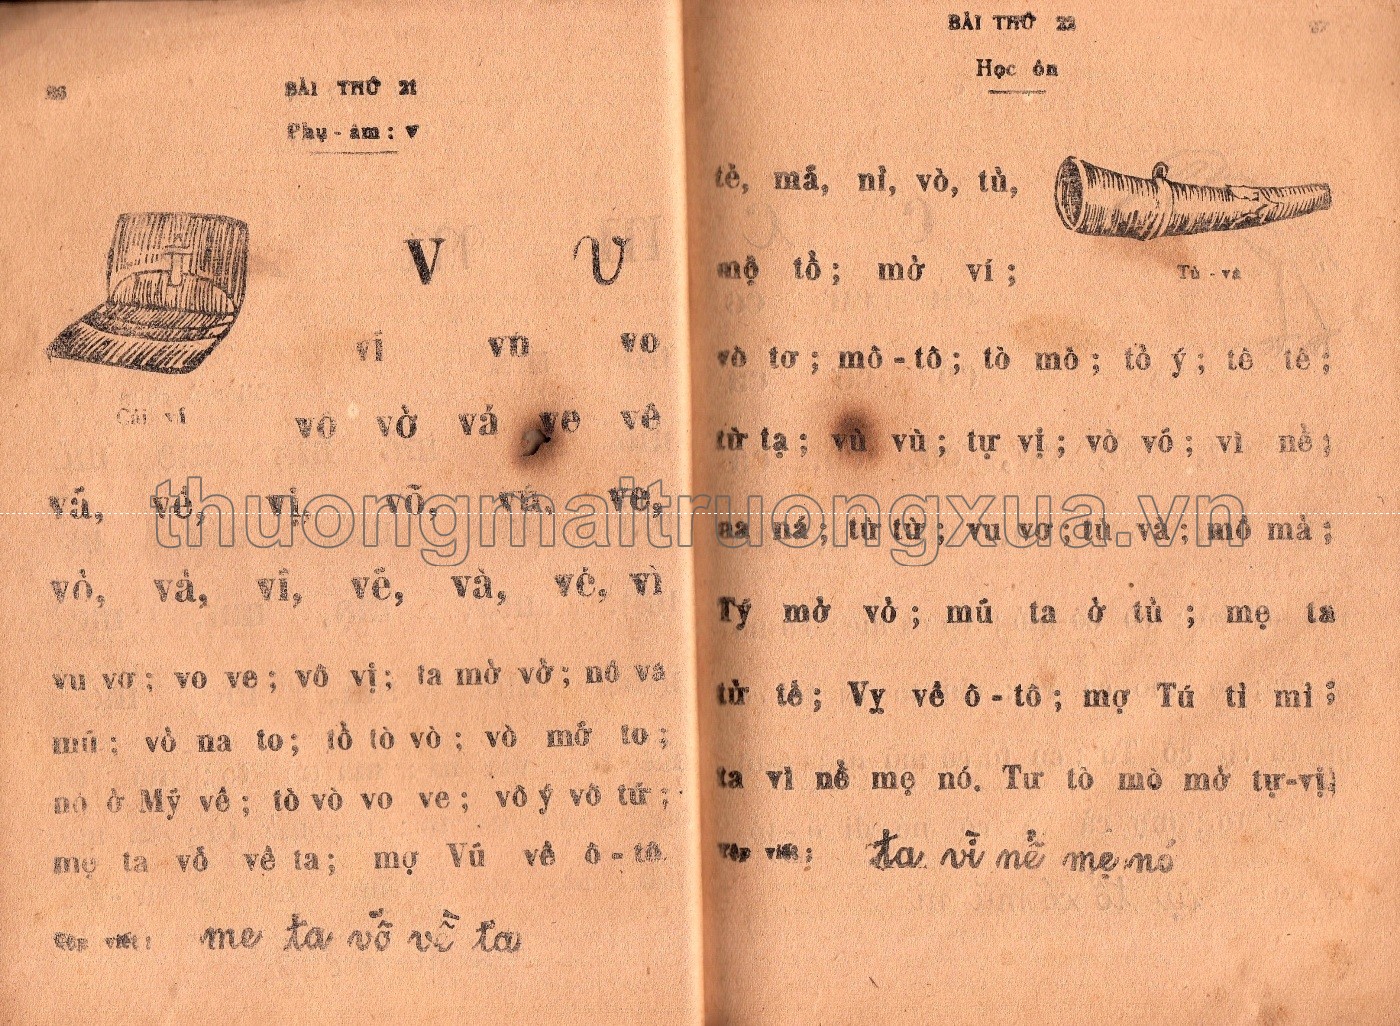 26
BÀI THỨ 21
Phụ-âm: v
V v
Cái ví
vi vu vo
vô vờ vá ve vê
vá, vẻ, vị, võ, vú, ve,
vỏ, vả, vỉ, vẽ, và, vé, vì
vu vơ; vo ve; vô vị; ta mờ vờ; nó va
mũ; vỏ na to; tổ tò vò; vò mở to;
nó ở Mỹ về; tò vò vo ve; vô ý vô tứ;
mẹ ta vỗ về ta; mợ Vú về ô-tô.
Tập viết: mẹ ta vỗ về ta
BÀI THỨ 22
Học ôn
tẻ, mả, nỉ, vò, tủ,
Tù-và
mộ tổ; mờ ví;
vò tơ; mô-tô; tò mò; tỏ ý; tê tê;
từ tạ; vù vù; tự vị; vò võ; vì nể;
na ná; từ từ; vu vơ; tù và; mồ mả;
Tý mở vở; mũ ta ở tủ; mẹ ta
tử tế; Vỵ về ô-tô; mợ Tú tỉ mỉ;
ta vì nể mẹ nó. Tư tò mò mở tự-vị.
Tập viết: ta vì nể mẹ nó
thuongmaitruongxua.vn